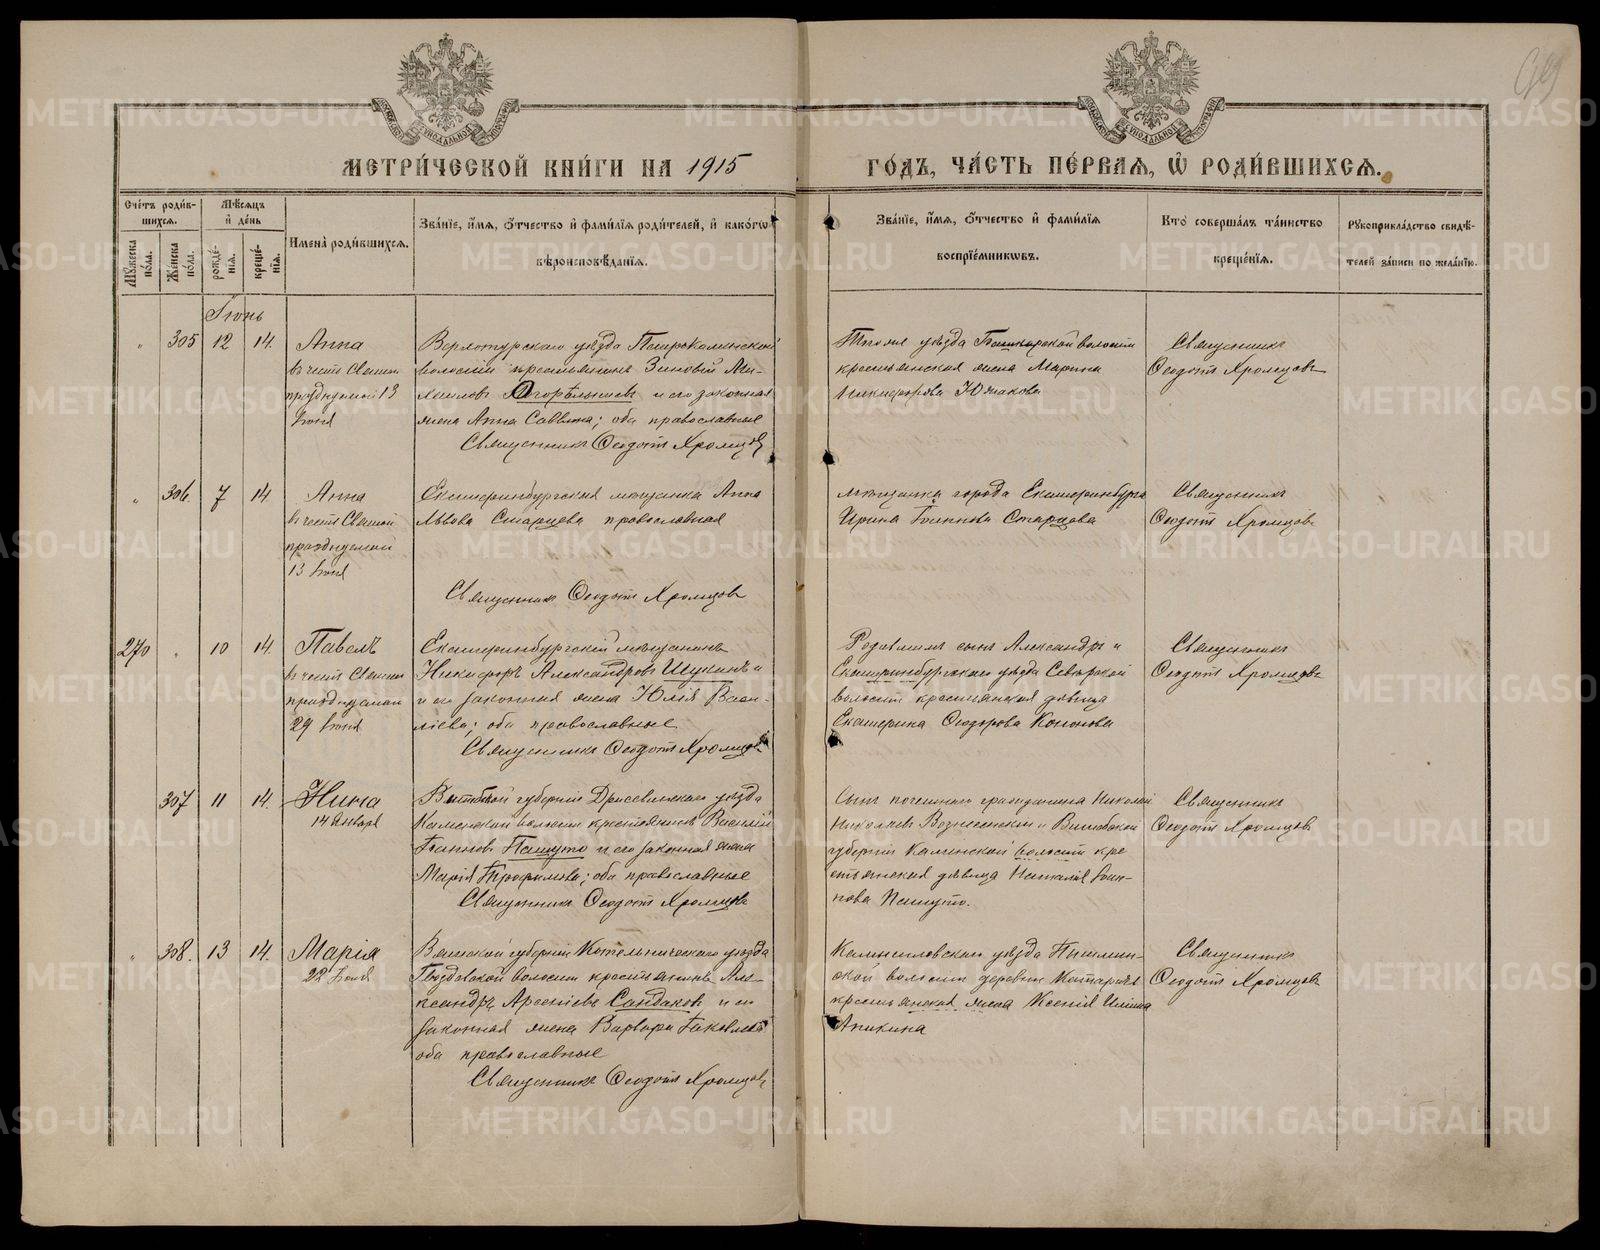 МЕТРИ́ЧЕСКОЙ КНИ́ГИ НА 1915
ГО́ДЪ, ЧА́СТЬ ПЕ́РВАЯ, Ѡ РОДИ́ВШИХСЯ.
Сче́тъ роди́в-
шихся.
Мѣ́сяцъ
и҆ де́нь
Мꙋ́жеска
по́ла.
Же́нска
по́ла.
рожде́-
нїѧ.
креще́-
нїѧ.
И҆мена̀ роди́вшихся.
Зва́нїе, и҆́мя, ѻ҆́тчество и҆ фами́лїя роди́телей, и҆ како́гѡ
вѣроисповѣ́данїя.
Зва́нїе, и҆́мя, ѻ҆́тчество и҆ фами́лїя
воспрїе́мникѡвъ.
Кто̀ соверша́лъ та́инство
креще́нїя.
Рꙋкоприкла́дство свидѣ́-
телей за́писи по жела́нїю.
Іюнь
" 305 12 14. Анна
въ честь Святой
празднуемой 13
Іюня
Верхотурскаго уѣзда
волости крестьянинъ Зиновій Ми-
хаиловъ Огорѣльцевъ и его законная
жена Анна Саввина; оба православные
Священникъ Ѳеодотъ Хромцовъ
Тогоже уѣзда Башкарской волости
крестьянская жена Марина
Никифорова Южакова
Священникъ
Ѳеодотъ Хромцовъ
" 306. 7 14. Анна
въ честь Святой
празднуемой
13 Іюня
Екатеринбургская мѣщанка Анна
Львова Старцева православная
Священникъ Ѳеодотъ Хромцовъ
мѣщанка города Екатеринбурга
Ирина Іоаннова Старцова
Священникъ
Ѳеодотъ Хромцовъ
270 " 10 14. Павелъ
въ честь Святого
празднуемаго
29 Іюня
Екатеринбургскій мѣщанинъ
Никифоръ Александровъ Щукинъ и
и его законная жена Юлія Васи-
ліева; оба православные
Священникъ Ѳеодотъ Хромцовъ
Родителей сынъ Александръ и
Екатеринбургскаго уѣзда Сысертской
волости крестьянская дѣвица
Екатерина Ѳеодорова Кононова
Священникъ
Ѳеодотъ Хромцовъ
307 11 14. Нина
14 Января
Витебской губерніи Дриссенскаго уѣзда
Каменской волости крестьянинъ Василій
Іоанновъ Пашуто и его законная жена
Марія Трофимова; оба православные
Священникъ Ѳеодотъ Хромцовъ
Сынъ почетнаго гражданина Николай
Николаевъ Вознесенскій и Витебской
губерніи Каменской волости кре-
стьянская дѣвица Наталія Іоан-
нова Пашуто.
Священникъ
Ѳеодотъ Хромцовъ
" 308. 13 14. Марія
22 Іюля
Вятской губерніи Котельническаго уѣзда
волости крестьянинъ Але-
ксандръ Арсеніевъ Сандаковъ и его
законная жена Варвара Іаковлева
оба православные
Священникъ Ѳеодотъ Хромцовъ
Камышловскаго уѣзда Пышмин-
ской волости деревни
крестьянская жена Ксенія Ильина
Аникина
Священникъ
Ѳеодотъ Хромцовъ
METRIKI.GASO-URAL.RU